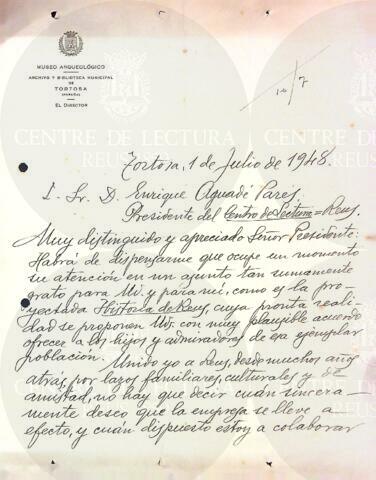 MUSEO ARQUEOLÓGICO
ARCHIVO Y BIBLIOTECA MUNICIPAL
DE
TORTOSA
(ESPAÑA)
EL DIRECTOR
10/7
CENTRE DE LECTURA
REUS
CENTRE DE LECTURA
REUS
Tortosa, 1 de Julio de 1948.
I. Sr. D. Enrique Aguadé Parés.
Presidente del Centro de Lectura = Reus.
Muy distinguido y apreciado Señor Presidente:
Habrá de dispensarme que ocupe un momento
su atención en un asunto tan sumamente
grato para Vd. y para mí, como es la pro-
yectada Historia de Reus, cuya pronta reali-
dad se proponen Vds. con muy plausible acuerdo
ofrecer a los hijos y admiradores de esa ejemplar
población. Unido yo a Reus, desde muchos años
atrás, por lazos familiares, culturales y de
amistad, no hay que decir cuán sincera-
mente deseo que la empresa se lleve a
efecto, y cuán dispuesto estoy a colaborar